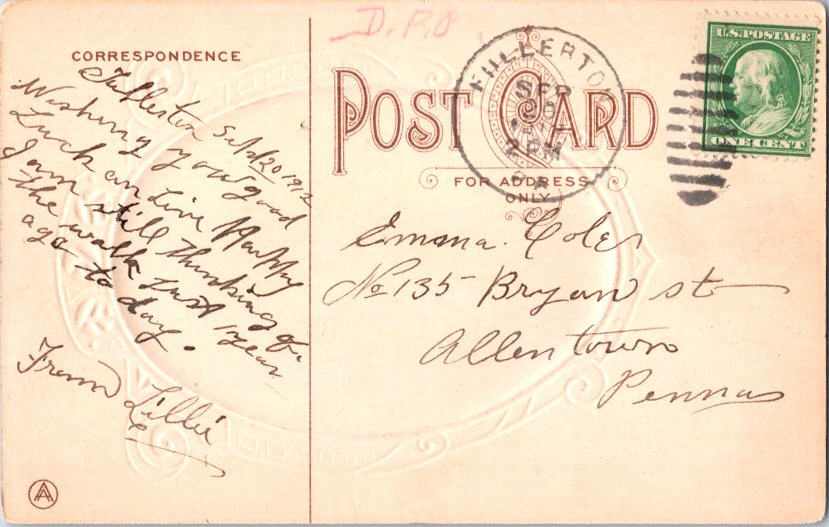 D.P.O
CORRESPONDENCE
POST CARD
FOR ADDRESS
ONLY
FULLERTON
SEP
2 PM
PA
U.S. POSTAGE
ONE CENT
Fullerton Sept 20 1912
Wishing you good
Luck an Live Happy
I am still thinking of
the walk Just 1 year
ago to day.
From Lillie
Emma. Coler
No 135 Bryan st
Allentown
Penna
AA